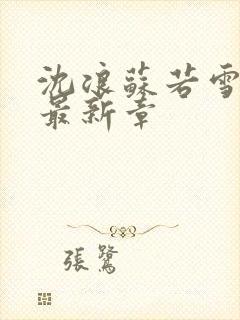 沈浪蘇若雪
最新章
張鷺